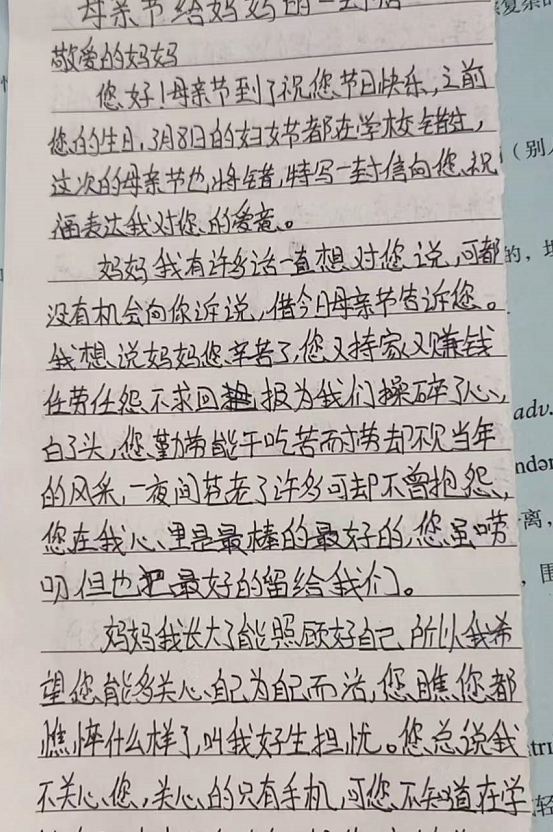 母亲节给妈妈的一封信
敬爱的妈妈
您好！母亲节到了祝您节日快乐，之前
您的生日，3月8日的妇女节都在学校错过，
这次的母亲节也将错，特写一封信向您祝
福表达我对您的爱意。
妈妈我有许多话一直想对您说，可都
没有机会向你诉说，借今日母亲节告诉您。
我想说妈妈您辛苦了，您又持家又赚钱
任劳任怨不求回报为我们操碎了心，
白了头，您勤劳能干吃苦而劳却不见当年
的风采，一夜间苍老了许多可却不曾抱怨，
您在我心里是最棒的最好的，您虽唠
叨但也把最好的留给我们。
妈妈我长大了能照顾好自己所以我希
望您能多关心自己为自己而活，您瞧您都
憔悴什么样了，叫我好生担忧。您总说我
不关心您，关心的只有手机，可您不知道在学
（别人
的，
adv.
离，
，围
轻